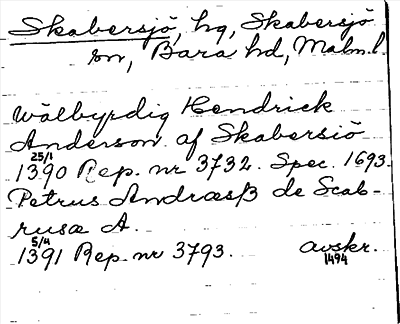 Skabersjö, hg, Skabersjö
sn, Bara hd, Malm.l.
Wälbyrdig Hendrick
Anderson af Skabersiö
25/1
1390 Rep. nr 3732. Spec. 1693.
Petrus Andræsß de Scab-
rusæ A.
5/4
1391 Rep. nr 3793. avskr.
1494